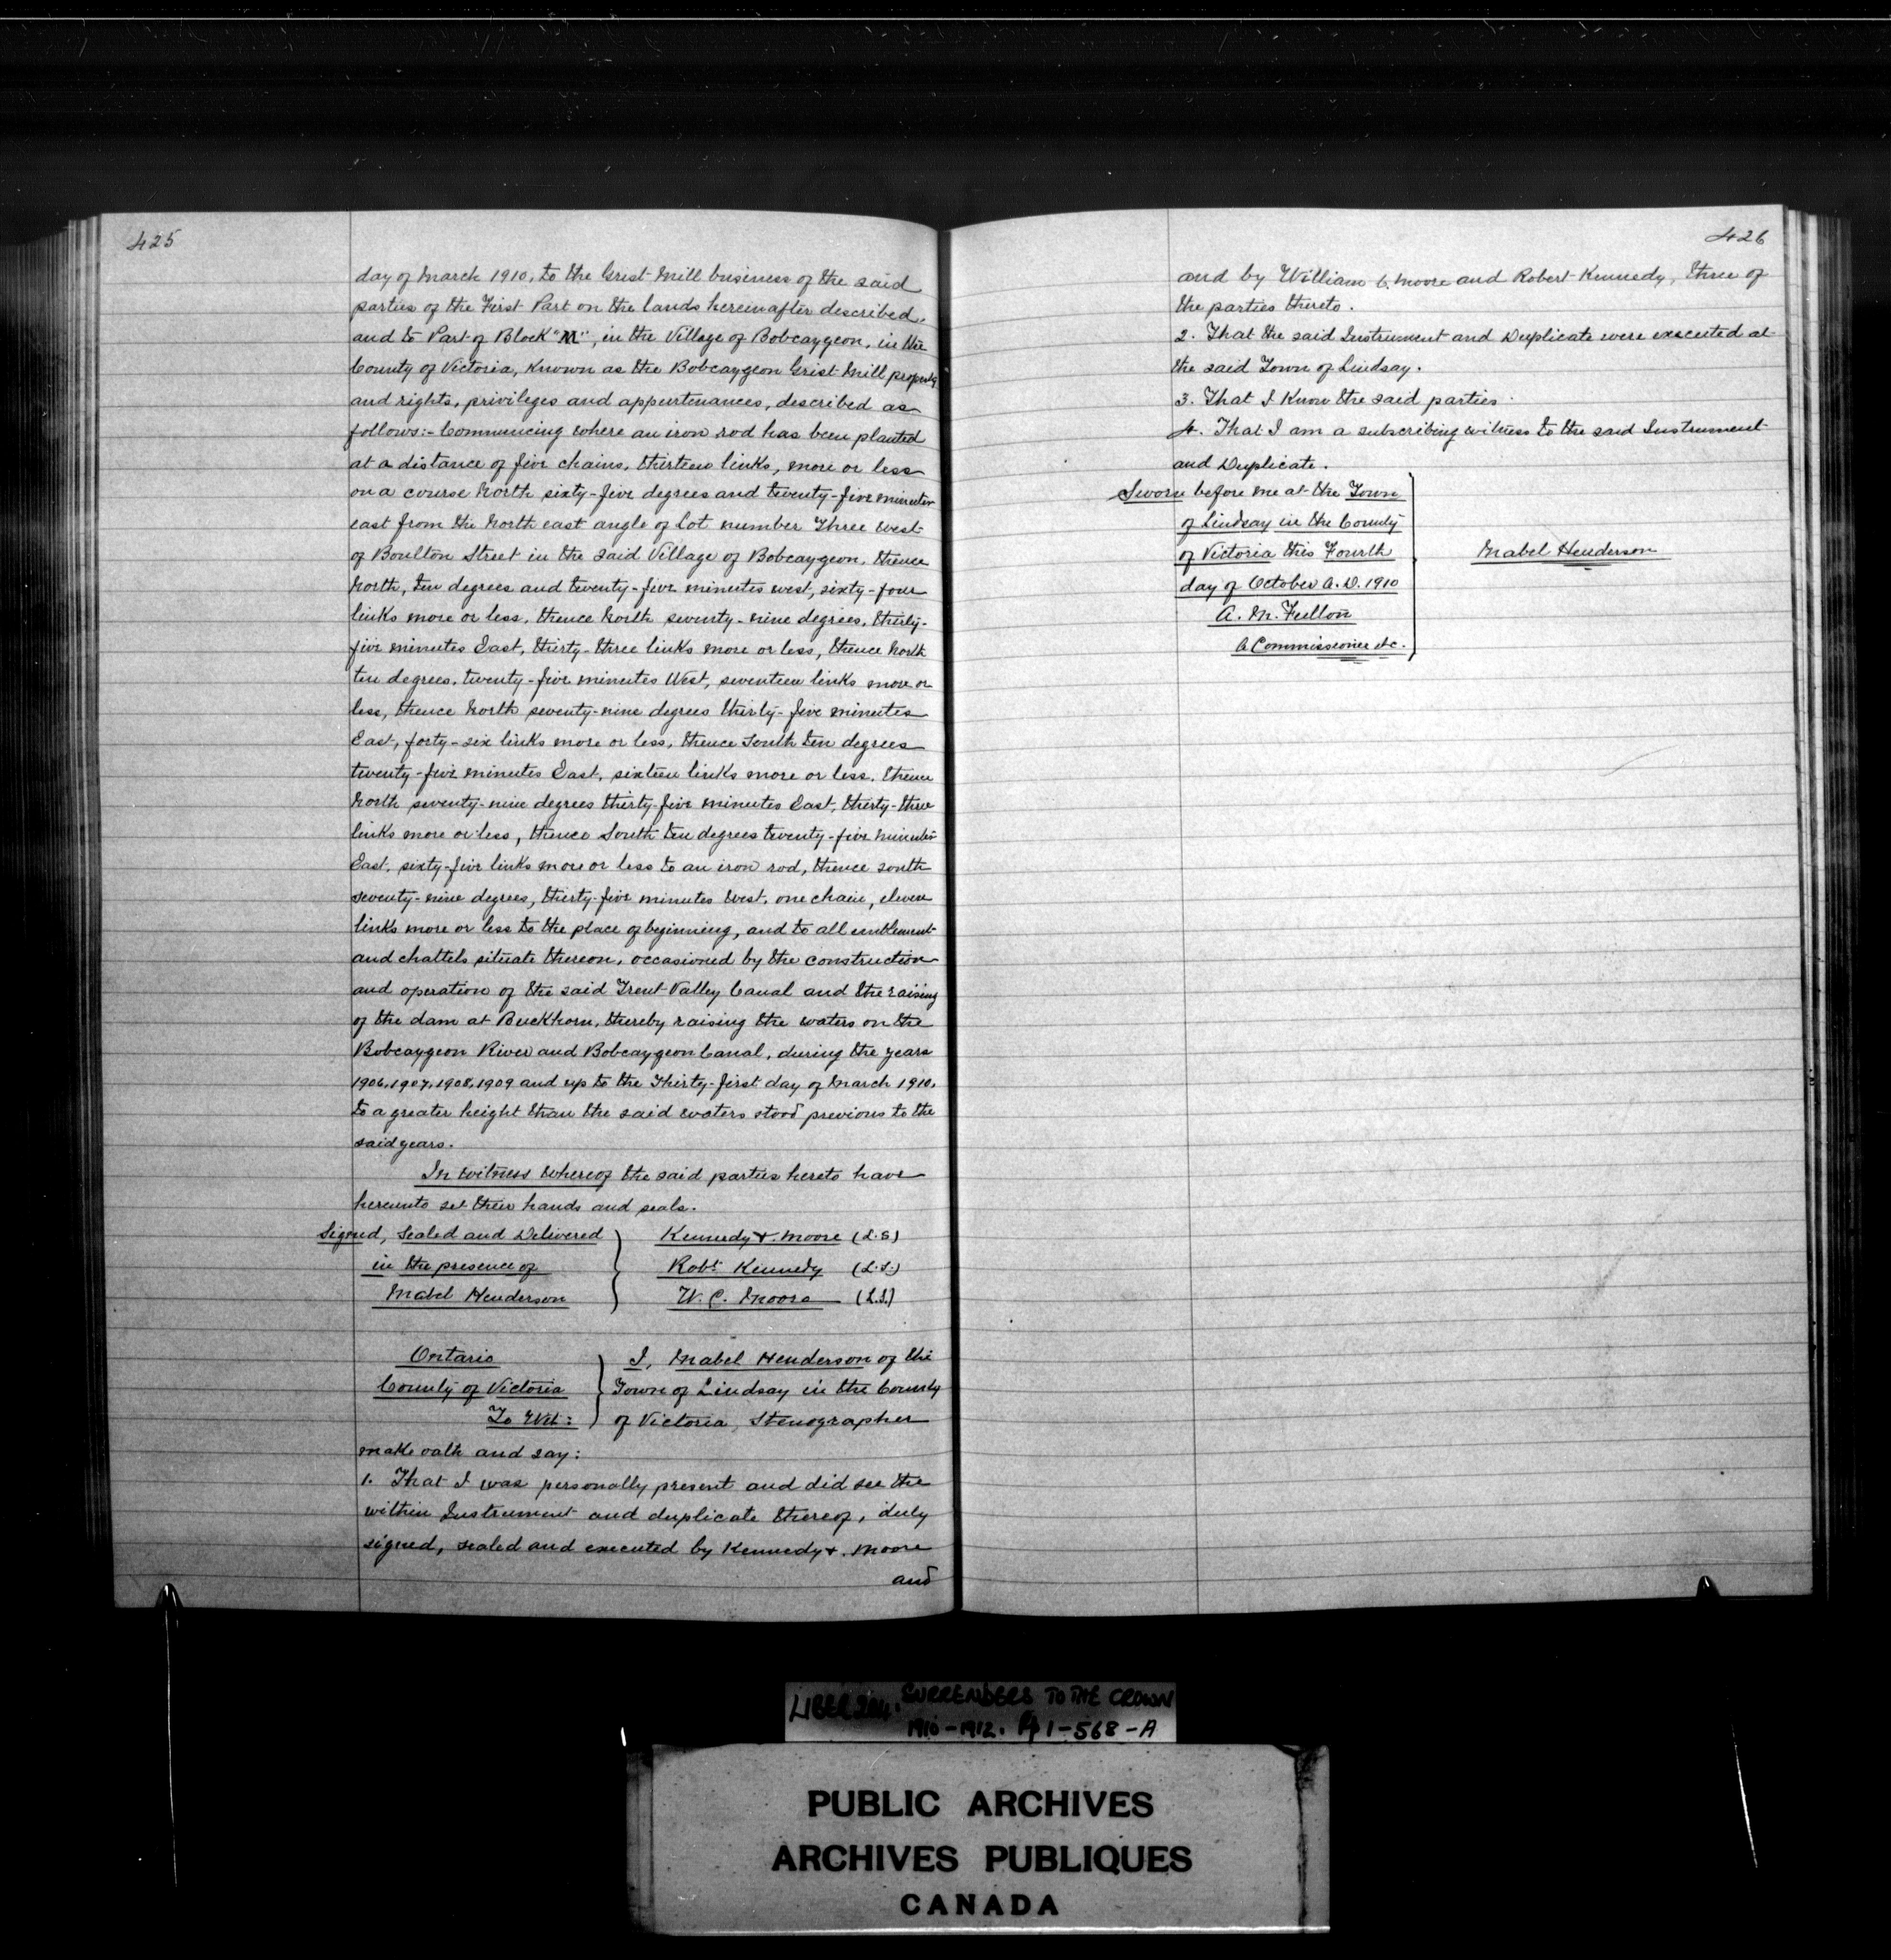 425
day of March 1910, to the Grist Mill business of the said
parties of the First Part on the lands hereinafter described,
and to Part of Block "M", in the Village of Bobcaygeon, in the
County of Victoria, Known as the Bobcaygeon Grist Mill property
and rights, privileges and appurtenances, described as
follows:- Commencing where an iron rod has been planted
at a distance of five chains, thirteen links, more or less
on a course North sixty-five degrees and twenty-five minutes
east from the North east angle of Lot number Three west
of Boulton Street in the said Village of Bobcaygeon, thence
North, ten degrees and twenty-five minutes west, sixty-four
links more or less, thence North seventy-nine degrees, thirty-
five minutes East, thirty-three links more or less, thence North
ten degrees, twenty-five minutes West, seventeen links more or
less, thence North seventy-nine degrees thirty-five minutes
East, forty-six links more or less, thence South ten degrees
twenty-five minutes East, sixteen links more or less, thence
North seventy-nine degrees thirty-five minutes East, thirty-three
links more or less, thence South ten degrees twenty-five minutes
East, sixty-five links more or less to an iron rod, thence south
seventy-nine degrees, thirty-five minutes West, one chain, eleven
links more or less to the place of beginning, and to all emblement
and chattels situate thereon, occasioned by the construction
and operation of the said Trent Valley Canal and the raising
of the dam at Buckhorn, thereby raising the waters on the
Bobcaygeon River and Bobcaygeon Canal, during the years
1906, 1907, 1908, 1909 and up to the Thirty-first day of March 1910,
to a greater height than the said waters stood previous to the
said years.
In witness whereof the said parties hereto have
hereunto set their hands and seals.
Signed, Sealed and Delivered } Kennedy & Moore (L.S)
in the presence of } Robt Kennedy (L.S.)
Mabel Henderson } W. C. Moore (L.S.)
Ontario } I, Mabel Henderson of the
County of Victoria } Town of Lindsay in the County
To Wit: } of Victoria, Stenographer
make oath and say:
1. That I was personally present and did see the
within Instrument and duplicate thereof, duly
signed, sealed and executed by Kennedy & Moore
and
426
and by William C. Moore and Robert Kennedy, three of
the parties thereto.
2. That the said Instrument and Duplicate were executed at
the said Town of Lindsay.
3. That I Know the said parties.
4. That I am a subscribing witness to the said Instrument
and Duplicate.
Sworn before me at the Town
of Lindsay in the County
of Victoria this Fourth } Mabel Henderson
day of October A.D. 1910
A. M. Fulton
A Commissioner etc.
LIBER 204. SURRENDERS TO THE CROWN
1910-1912. Pp 1-568-A
PUBLIC ARCHIVES
ARCHIVES PUBLIQUES
CANADA